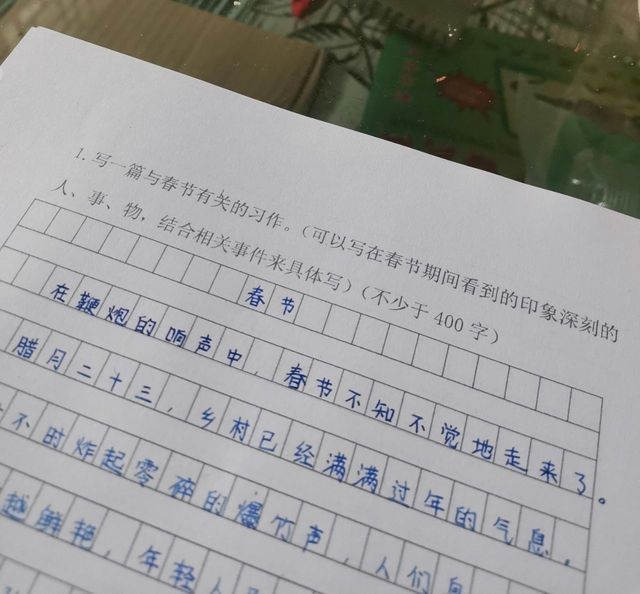 1. 写一篇与春节有关的习作。（可以写在春节期间看到的印象深刻的
人、事、物，结合相关事件来具体写）（不少于 400 字）
春节
在鞭炮的响声中，春节不知不觉地走来了。
腊月二十三，乡村已经满满过年的气息，
不时炸起零碎的爆竹声，人们
越鲜艳，年轻人